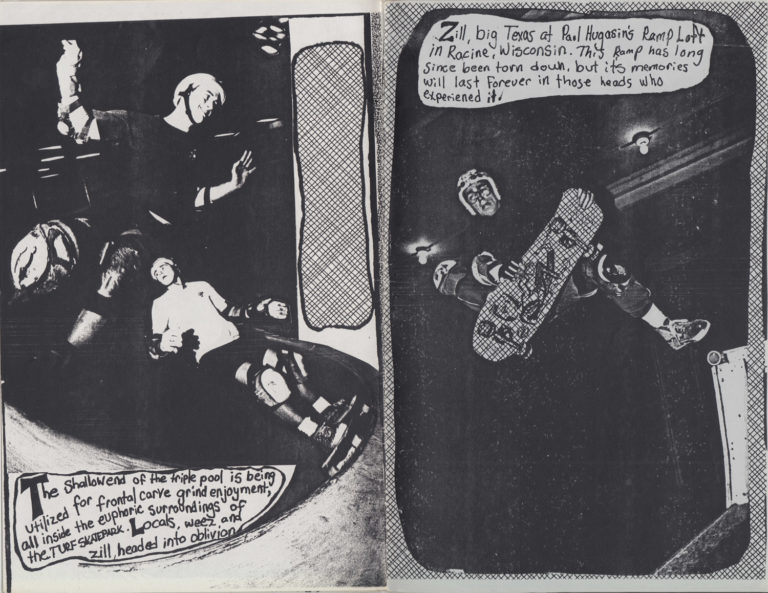 The shallowend of the triple pool is being
utilized for frontal carve grind enjoyment,
all inside the euphoric surroundings of
the TURF SKATEPARK. Locals, weez and
zill, headed into oblivion.
Zill, big Texas at Paul Hugasin's Ramp Loft
in Racine, Wisconsin. This Ramp has long
since been torn down, but its memories
will last Forever in those heads who
experiened it.